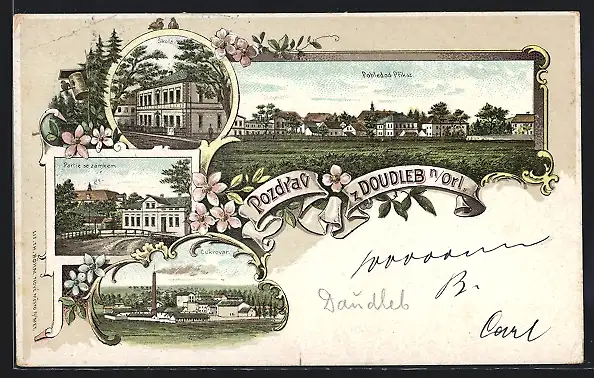 Škola
Pohled od Příkaz
Partie se zámkem.
Pozdrav z DOUDLEB n/Orl.
Cukrovar.
B.
Daudleb
Carl